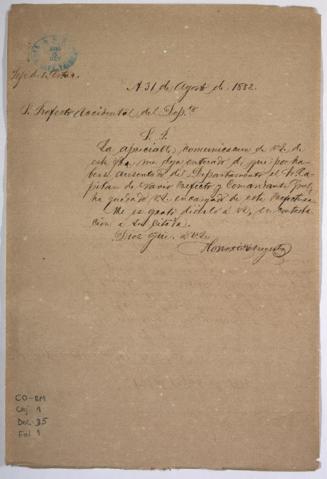 A 31 de Agosto de 1882.
S. Prefecto Accidental del Dep.to
S. P.
La apreciable comunicacion de U. de
esta fha, me deja enterado de que por ha-
berse ausentado del Departamento el S. Ca-
pitan de Navio Prefecto y Comandante Jral,
ha quedado U. encargado de esta Prefectura.
Me es grato decirlo a U. en contesta-
cion a su citada.
Dios gue. a U.
CO-RM
Caj 1
Doc 35
Fol 1